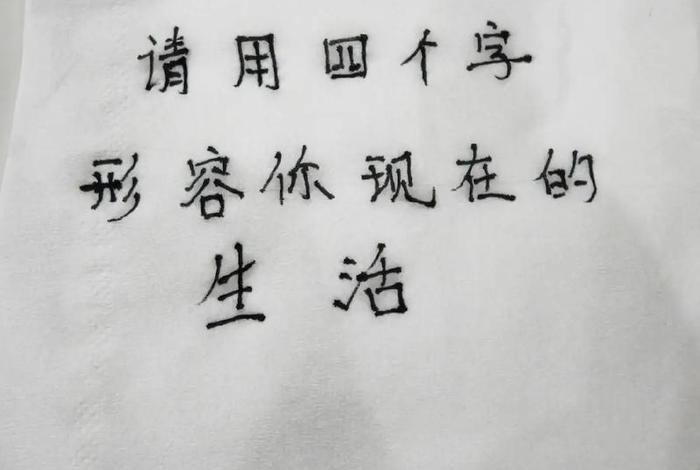 请用四个字
形容你现在的
生活